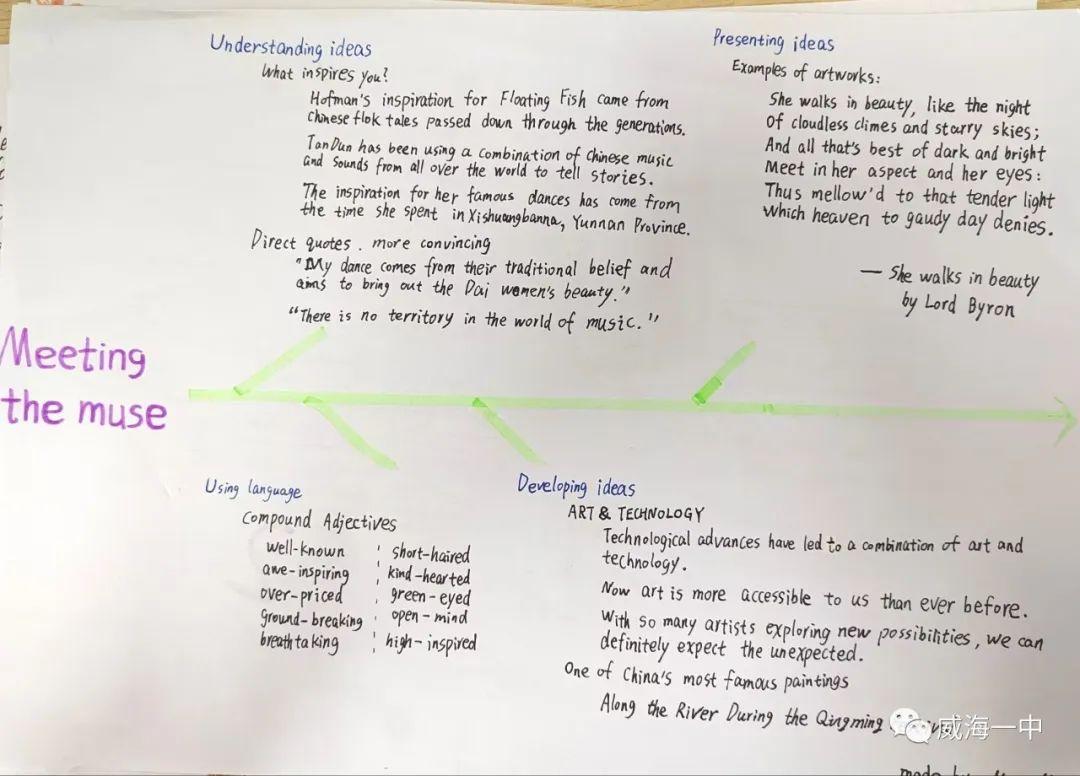 Meeting
the muse
Understanding ideas
What inspires you?
Hofman's inspiration for Floating Fish came from
Chinese flok tales passed down through the generations.
TanDun has been using a combination of Chinese music
and sounds from all over the world to tell stories.
The inspiration for her famous dances has come from
the time she spent in Xishuangbanna, Yunnan Province.
Direct quotes. more convincing
"My dance comes from their traditional belief and
aims to bring out the Dai women's beauty."
"There is no territory in the world of music."
Presenting ideas
Examples of artworks:
She walks in beauty, like the night
Of cloudless climes and starry skies;
And all that's best of dark and bright
Meet in her aspect and her eyes:
Thus mellow'd to that tender light
Which heaven to gaudy day denies.
— She walks in beauty
by Lord Byron
Using language
Compound Adjectives
well-known ¦ short-haired
awe-inspiring ¦ kind-hearted
over-priced ¦ green-eyed
ground-breaking ¦ open-mind
breathtaking ¦ high-inspired
Developing ideas
ART & TECHNOLOGY
Technological advances have led to a combination of art and
technology.
Now art is more accessible to us than ever before.
With so many artists exploring new possibilities, we can
definitely expect the unexpected.
One of China's most famous paintings
Along the River During the Qingming
威海一中